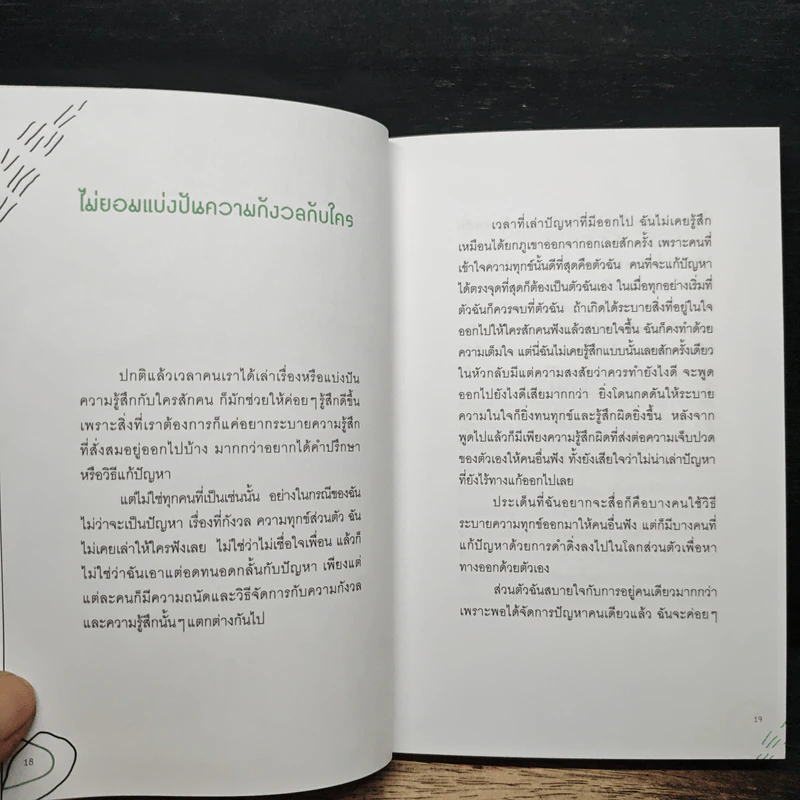 ไม่ยอมแบ่งปันความกังวลกับใคร
ปกติแล้วเวลาคนเราได้เล่าเรื่องหรือแบ่งปัน
ความรู้สึกกับใครสักคน ก็มักช่วยให้ค่อยๆ รู้สึกดีขึ้น
เพราะสิ่งที่เราต้องการก็แค่อยากระบายความรู้สึก
ที่สั่งสมอยู่ออกไปบ้าง มากกว่าอยากได้คำปรึกษา
หรือวิธีแก้ปัญหา
แต่ไม่ใช่ทุกคนที่เป็นเช่นนั้น อย่างในกรณีของฉัน
ไม่ว่าจะเป็นปัญหา เรื่องที่กังวล ความทุกข์ส่วนตัว ฉัน
ไม่เคยเล่าให้ใครฟังเลย ไม่ใช่ว่าไม่เชื่อใจเพื่อน แล้วก็
ไม่ใช่ว่าฉันเอาแต่อดทนอดกลั้นกับปัญหา เพียงแต่
แต่ละคนก็มีความถนัดและวิธีจัดการกับความกังวล
และความรู้สึกนั้นๆ แตกต่างกันไป
18
เวลาที่เล่าปัญหาที่มีออกไป ฉันไม่เคยรู้สึก
เหมือนได้ยกภูเขาออกจากอกเลยสักครั้ง เพราะคนที่
เข้าใจความทุกข์นั้นดีที่สุดคือตัวฉัน คนที่จะแก้ปัญหา
ได้ตรงจุดที่สุดก็ต้องเป็นตัวฉันเอง ในเมื่อทุกอย่างเริ่มที่
ตัวฉันก็ควรจบที่ตัวฉัน ถ้าเกิดได้ระบายสิ่งที่อยู่ในใจ
ออกไปให้ใครสักคนฟังแล้วสบายใจขึ้น ฉันก็คงทำด้วย
ความเต็มใจ แต่นี่ฉันไม่เคยรู้สึกแบบนั้นเลยสักครั้งเดียว
ในหัวกลับมีแต่ความสงสัยว่าควรทำยังไงดี จะพูด
ออกไปยังไงดีเสียมากกว่า ยิ่งโดนกดดันให้ระบาย
ความในใจก็ยิ่งทนทุกข์และรู้สึกผิดยิ่งขึ้น หลังจาก
พูดไปแล้วก็มีเพียงความรู้สึกผิดที่ส่งต่อความเจ็บปวด
ของตัวเองให้คนอื่นฟัง ทั้งยังเสียใจว่าไม่น่าเล่าปัญหา
ที่ยังไร้ทางแก้ออกไปเลย
ประเด็นที่ฉันอยากจะสื่อก็คือบางคนใช้วิธี
ระบายความทุกข์ออกมาให้คนอื่นฟัง แต่ก็มีบางคนที่
แก้ปัญหาด้วยการดำดิ่งลงไปในโลกส่วนตัวเพื่อหา
ทางออกด้วยตัวเอง
ส่วนตัวฉันสบายใจกับการอยู่คนเดียวมากกว่า
เพราะพอได้จัดการปัญหาคนเดียวแล้ว ฉันจะค่อยๆ
19